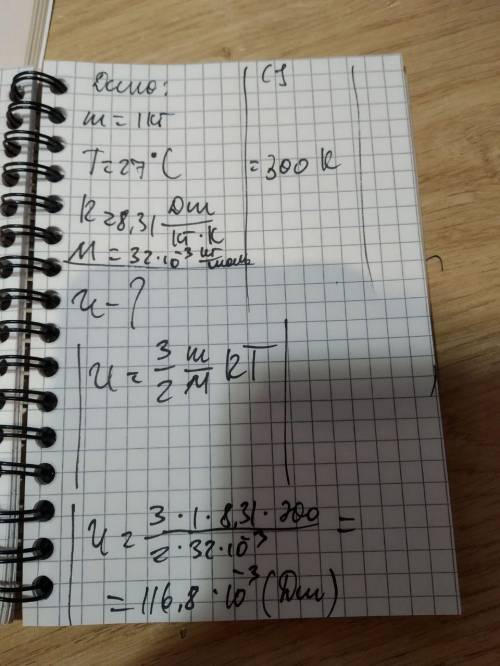 Дано: СИ
m = 1 кг
T = 27°C = 300 K
R = 8,31 Дж/кг·K
M = 32·10⁻³ кг/моль
U - ?
U = 3/2 m/M RT
U = 3·1·8,31·300 / 2·32·10⁻³ =
= 116,8·10⁻³ (Дж)